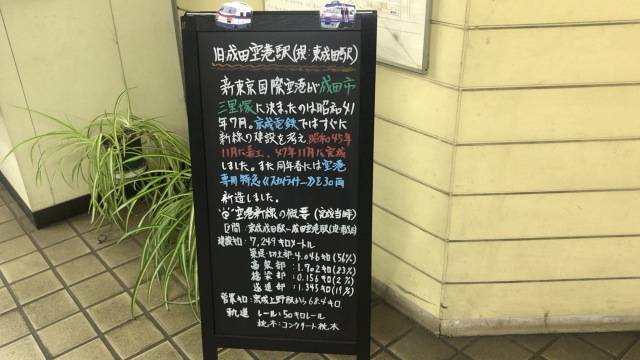 旧成田空港駅(現:東成田駅)
新東京国際空港が成田市
三里塚に決まったのは昭和41
年7月。京成電鉄ではすぐに
新線の建設を考え昭和45年
11月に着工、47年11月に完成
しました。また同年春には空港
専用特急《スカイライナー》を30両
新造しました。
空港新線の概要(完成当時)
区間:京成成田駅〜成田空港駅
建設キロ:7,249キロメートル
4.046キロ(56%)
高架部:1.702キロ(23%)
橋梁部:0.156キロ(2%)
隧道部:1.345キロ(19%)
営業キロ:京成上野駅から68.4キロ
軌道 レール:50キロレール
枕木:コンクリート枕木